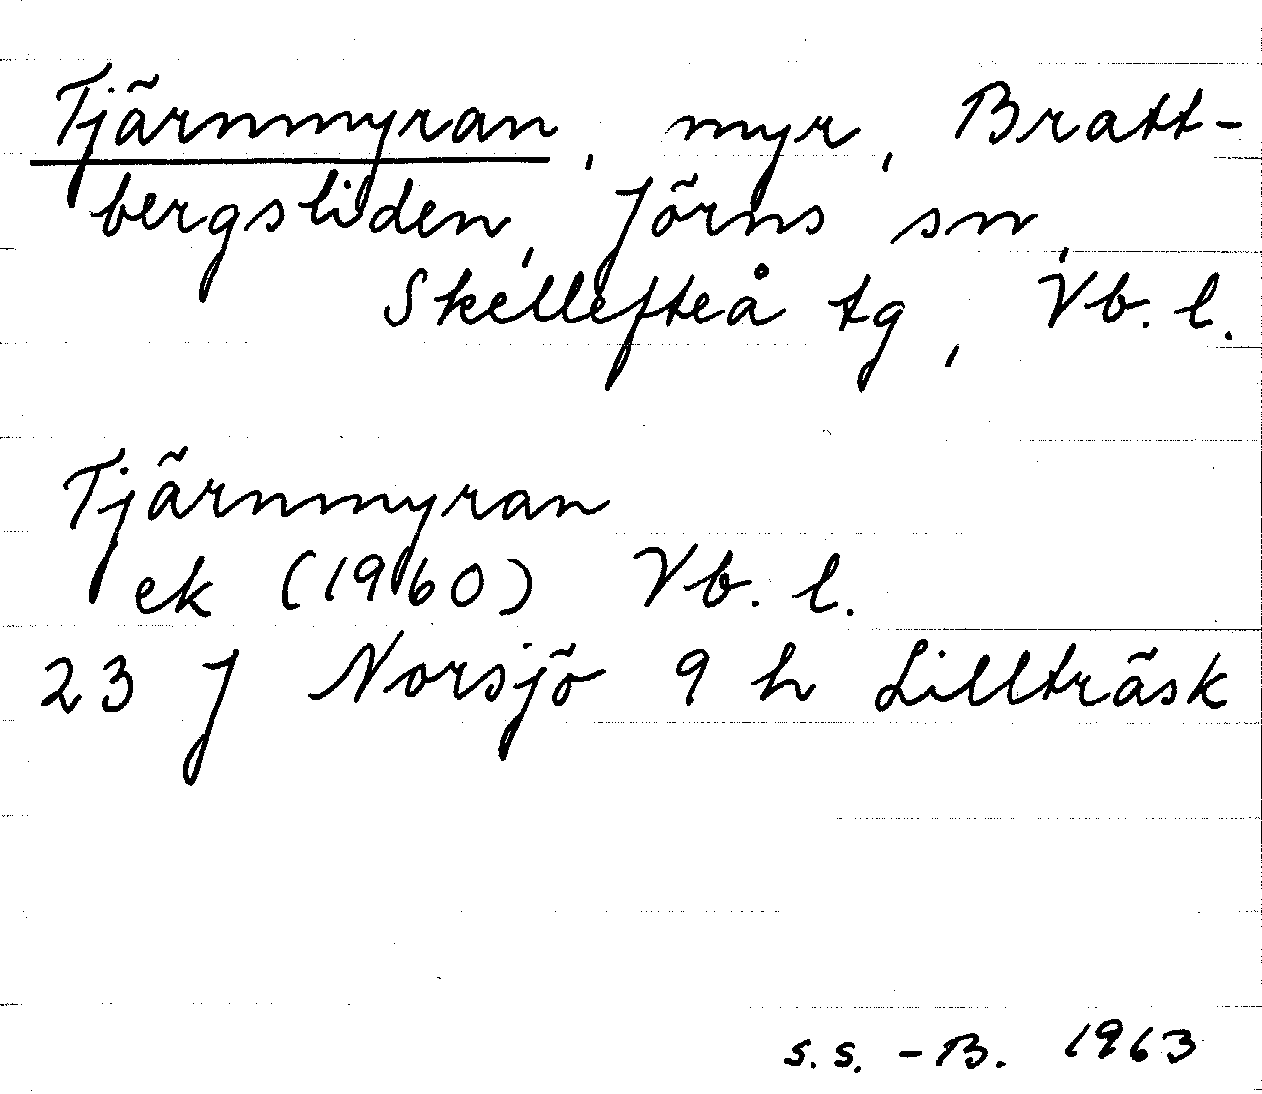 Tjärnmyran, myr, Bratt-
bergsliden, Jörns sn,
Skellefteå tg, Vb. l.
Tjärnmyran
ek (1960) Vb. l.
23 J Norsjö 9 h Lillträsk
s.s. -B. 1963